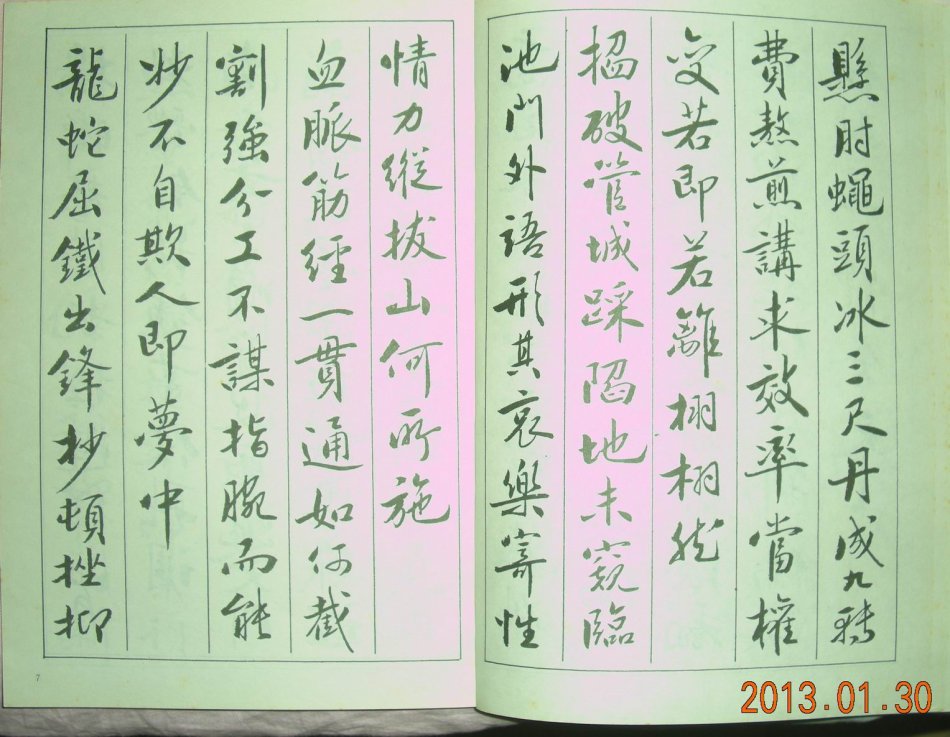 懸肘蠅頭冰三尺丹成九轉
費熬煎講求效率當權
變若即若離栩栩然
搵破管城踩陷地未窺臨
池門外語形其哀樂寄性
情力縱拔山何所施
血脈筋經一貫通如何截
割強分工不謀指腕而能
妙不自欺人即夢中
龍蛇屈鐵出鋒抄頓挫抑
7
2013.01.30